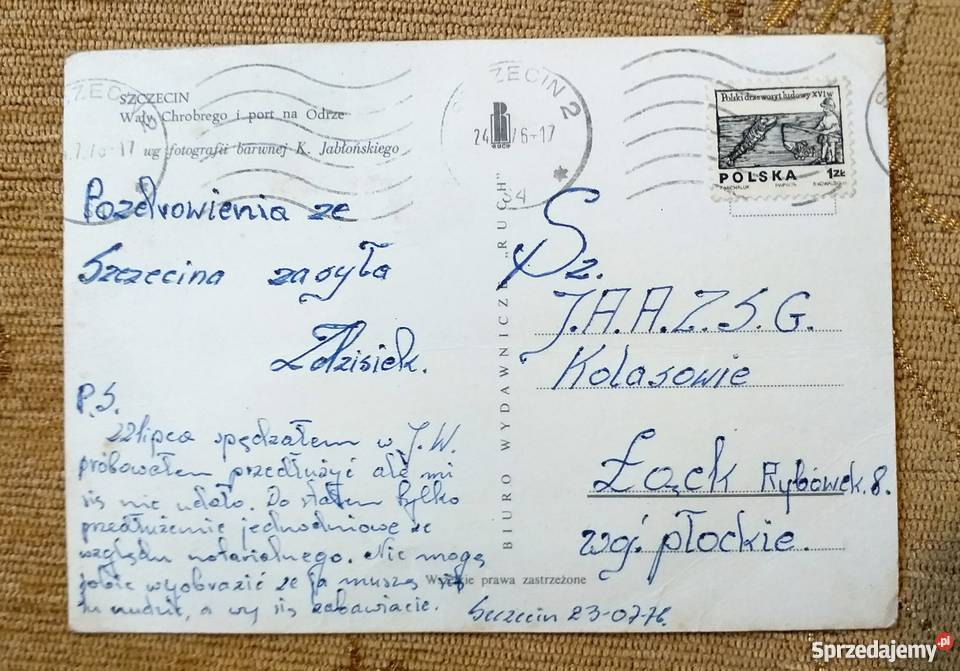 SZCZECIN
Wały Chrobrego i port na Odrze
wg fotografii barwnej K. Jabłońskiego
Pozdrowienia ze
Szczecina zasyła
Zdzisiek.
P.S.
22 lipca spędzałem w J.W.
próbowałem przedłużyć ale mi
się nie udało. Dostałem tylko
przedłużenie jednodniowe ze
względu notarialnego. Nie mogę
sobie wyobrazić że ja muszę się
tu nudzić, a wy się zabawiacie.
Szczecin 23-07-76.
BIURO WYDAWNICZE „RUCH"
RUCH
SZCZECIN 2
24 76-17
Polski drzeworyt ludowy XVI w
POLSKA 1ZŁ
Sz.
J.A.A.Z.S.G.
Kolasowie
Łąck Rybówek.8.
wg. płockie.
Wszelkie prawa zastrzeżone
Sprzedajemy.pl